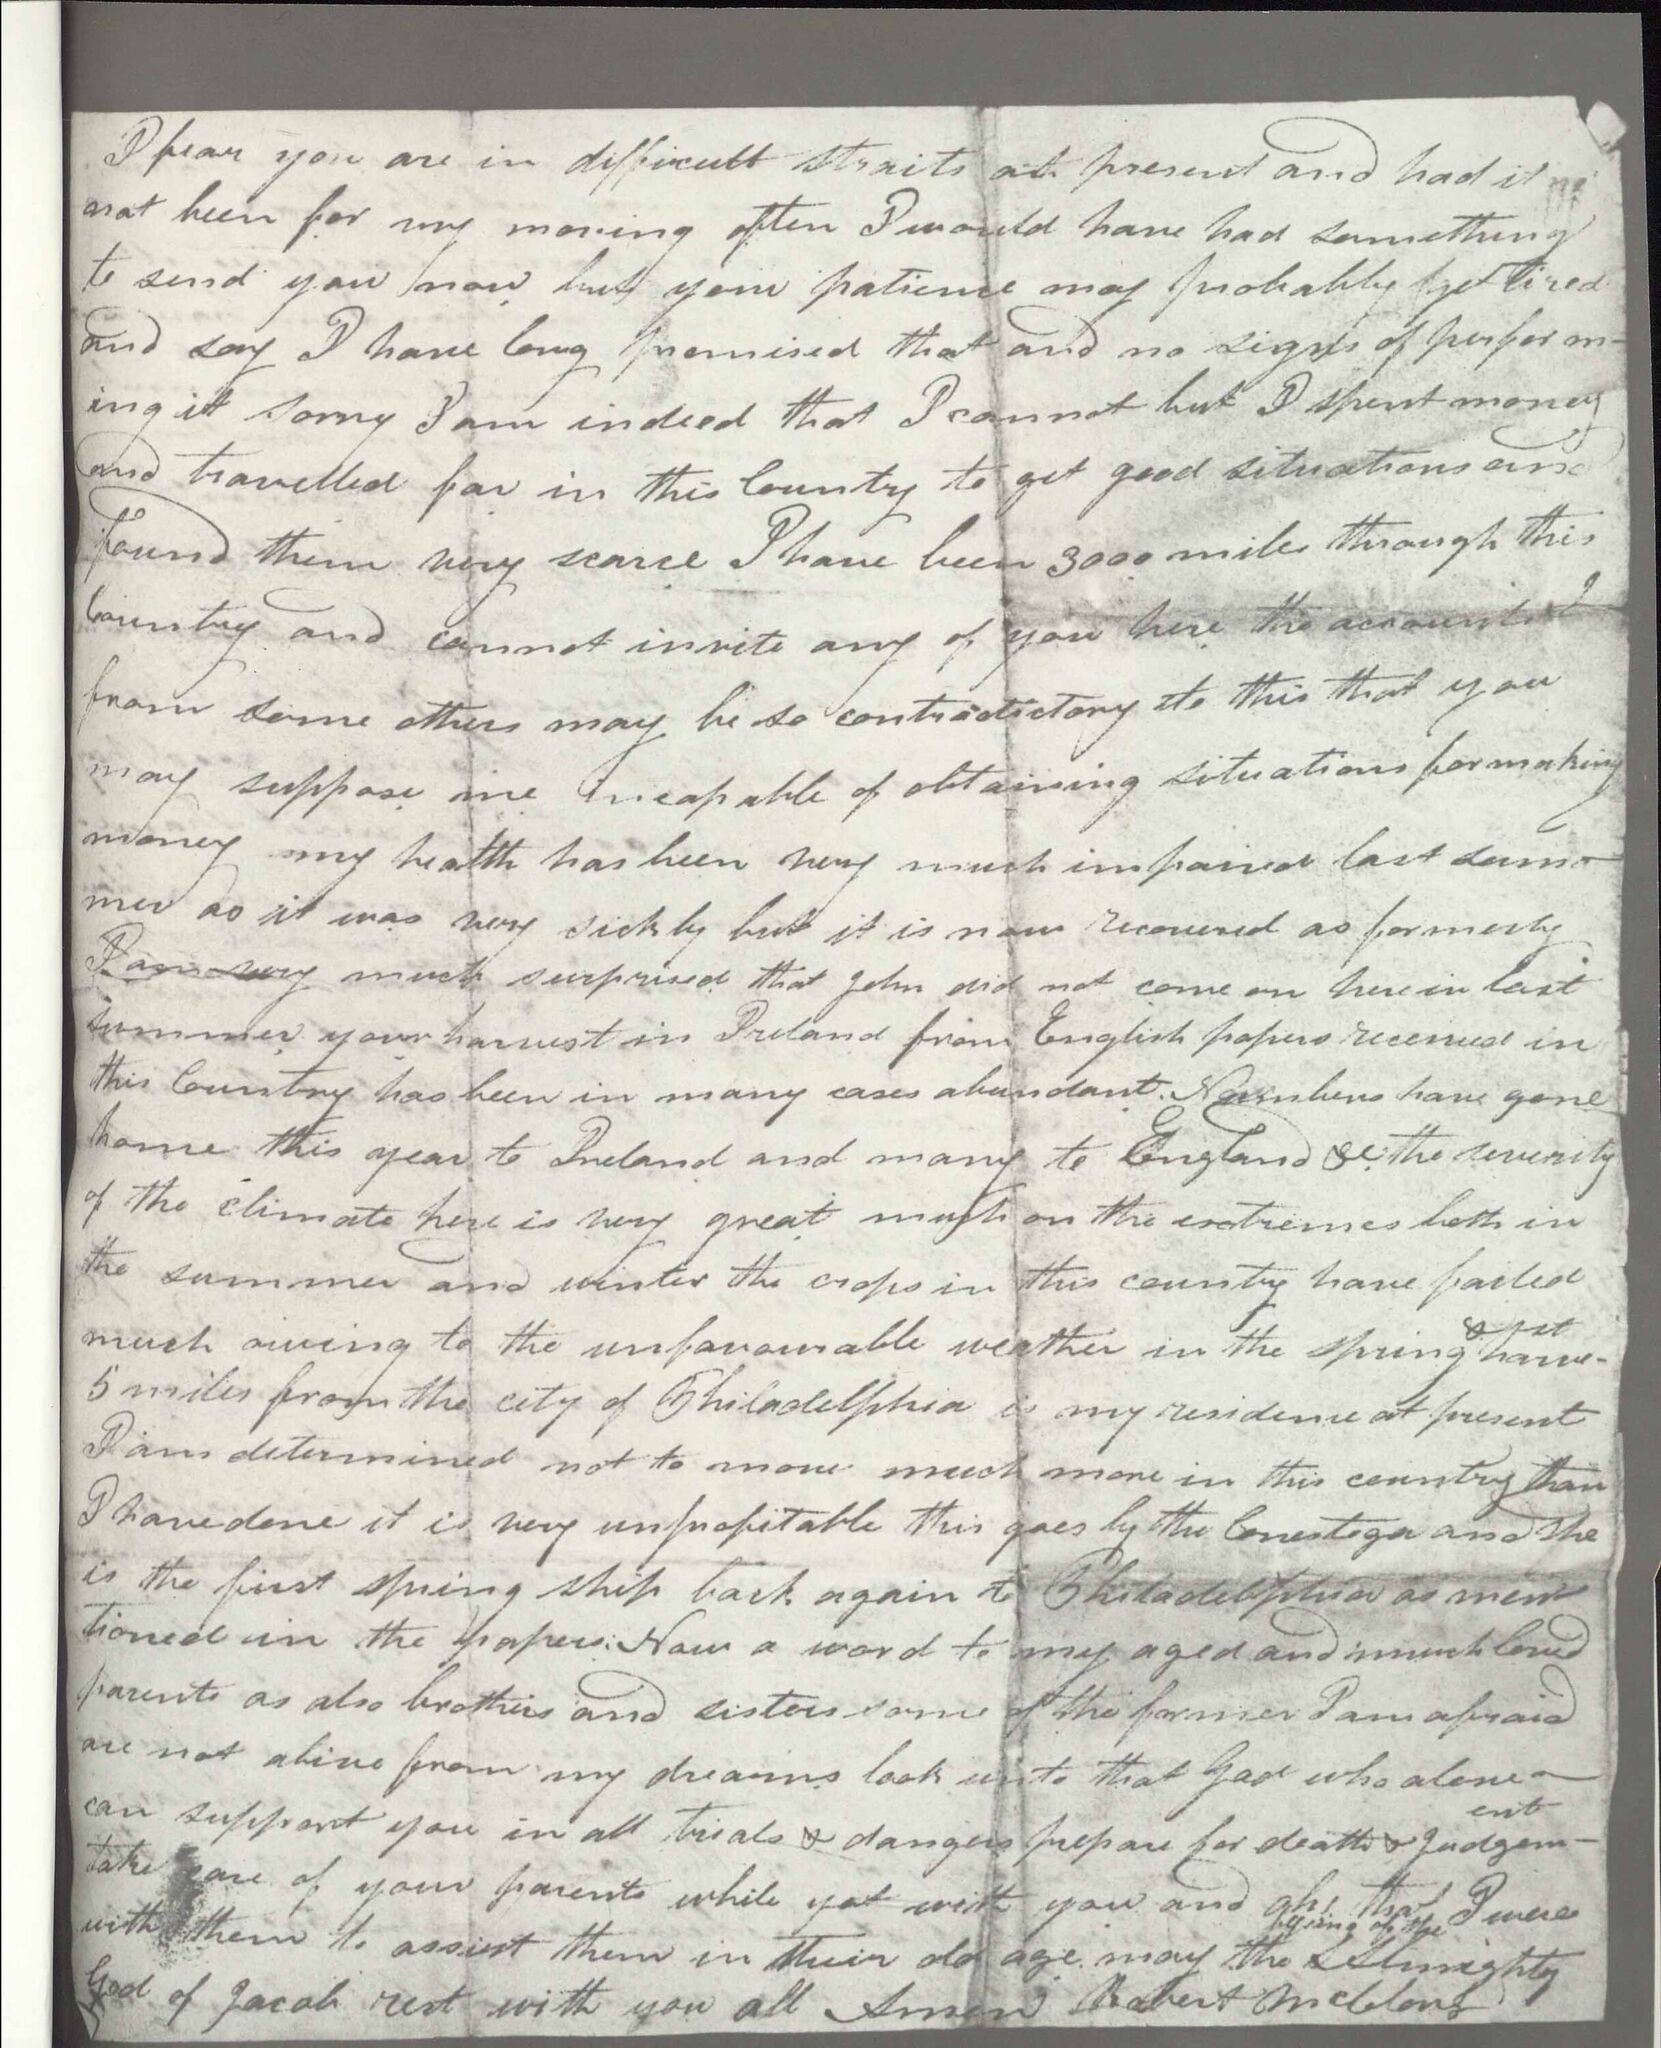 I fear you are in difficult straits at present and had it
not been for my moving often I would have had something
to send you now but your patience may probably get tired
and say I have long promised that and no signs of perform-
ing it sorry I am indeed that I cannot but I spent money
and travelled far in this Country to get good situations and
found them very scarce I have been 3000 miles through this
Country and cannot invite any of you here the accounts
from some others may be so contradictory to this that you
may suppose me incapable of obtaining situations for making
money my health has been very much impaired last sum-
mer as it was very sickly but it is now recovered as formerly
I am very much surprised that John did not come on here in last
summer your harvest in Ireland from English papers received in
this Country has been in many cases abundant. Numbers have gone
home this year to Ireland and many to England &c the severity
of the climate here is very great much on the extremes both in
the summer and winter the crops in this country have failed
much owing to the unfavourable weather in the spring & harve-st
5 miles from the city of Philadelphia is my residence at present
I am determined not to move much more in this country than
I have done it is very unprofitable this goes by the Conestoga and she
is the first spring ship back again to Philadelphia as men
tioned in the papers. Now a word to my aged and much loved
parents as also brothers and sisters some of the former I am afraid
are not alive from my dreams look unto that God who alone
can support you in all trials & dangers prepare for death & Judgem-ent
take care of your parents while yet with you and oh! that I were
with them to assist them in their old age. may the blessing of the Almighty
God of Jacob rest with you all Amen Robert